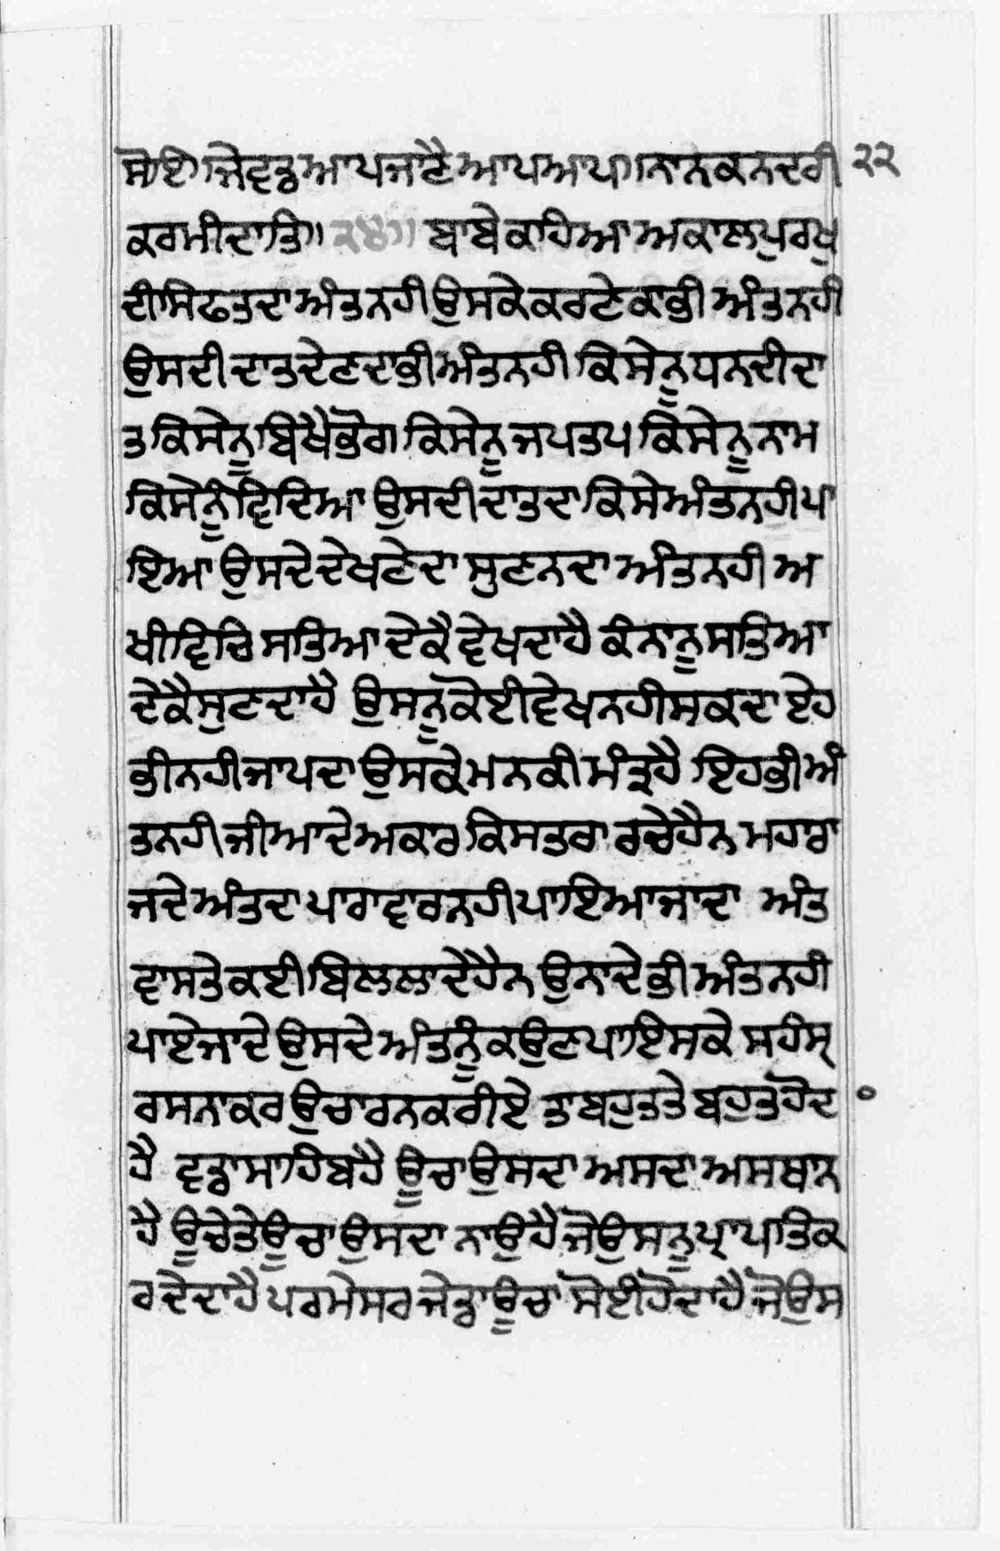 ਸੋਇ॥ ਜੇਵਡੁ ਆਪ ਜਾਣੈ ਆਪ ਆਪ॥ ਨਾਨਕ ਨਦਰੀ ੨੨
ਕਰਮੀ ਦਾਤਿ॥ ੨੪॥ ਬਾਬੇ ਕਹਿਆ ਅਕਾਲ ਪੁਰਖੁ
ਦੀ ਸਿਫਤ ਦਾ ਅੰਤ ਨਹੀ ਉਸਕੇ ਕਰਣੇ ਕਾ ਭੀ ਅੰਤ ਨਹੀ
ਉਸਦੀ ਦਾਤ ਦੇਣ ਦਾ ਭੀ ਅੰਤ ਨਹੀ ਕਿਸੇ ਨੂ ਧਨ ਦੀ ਦਾ
ਤ ਕਿਸੇ ਨੂ ਬਿਖੈ ਭੋਗ ਕਿਸੇ ਨੂ ਜਪ ਤਪ ਕਿਸੇ ਨੂ ਨਾਮ
ਕਿਸੇ ਨੂੰ ਵਿਦਿਆ ਉਸਦੀ ਦਾਤ ਦਾ ਕਿਸੇ ਅੰਤ ਨਹੀ ਪਾ
ਇਆ ਉਸਦੇ ਦੇਖਣੇ ਦਾ ਸੁਣਨ ਦਾ ਅੰਤ ਨਹੀ ਅ
ਖੀ ਵਿਚਿ ਸਤਿਆ ਦੇ ਕੈ ਵੇਖਦਾ ਹੈ ਕੰਨਾ ਨੂ ਸਤਿਆ
ਦੇ ਕੈ ਸੁਣਦਾ ਹੈ ਉਸਨੂ ਕੋਈ ਵੇਖ ਨਹੀ ਸਕਦਾ ਏਹ
ਭੀ ਨਹੀ ਜਾਪਦਾ ਉਸਕੇ ਮਨ ਕੀ ਮੰਤ੍ਰ ਹੈ ਇਹ ਭੀ ਅੰ
ਤ ਨਹੀ ਜੀਆ ਦੇ ਅਕਾਰ ਕਿਸ ਤਰਾ ਰਚੇ ਹੈਨ ਮਹਾਰਾ
ਜ ਦੇ ਅੰਤ ਦਾ ਪਾਰਾਵਾਰ ਨਹੀ ਪਾਇਆ ਜਾਦਾ ਅੰਤ
ਵਾਸਤੇ ਕਈ ਬਿਲਲਾਦੇ ਹੈਨ ਉਨਾ ਦੇ ਭੀ ਅੰਤ ਨਹੀ
ਪਾਏ ਜਾਦੇ ਉਸਦੇ ਅੰਤ ਨੂੰ ਕਉਣ ਪਾਇ ਸਕੇ ਸਹੰਸ੍
ਰਸਨਾ ਕਰ ਉਚਾਰਨ ਕਰੀਏ ਤਾ ਬਹੁਤ ਤੇ ਬਹੁਤ ਹੋਦ ॰
ਹੈ ਵਡਾ ਸਾਹਿਬ ਹੈ ਊਚਾ ਉਸਦਾ ਅਸਦਾ ਅਸਥਾਨ
ਹੈ ਊਚੇ ਤੇ ਊਚਾ ਉਸਦਾ ਨਾਉ ਹੈ ਜੋ ਉਸਨੂ ਪ੍ਰਾਪਤਿ ਕ
ਰਦੇਦਾ ਹੈ ਪਰਮੇਸਰ ਜੇਡਾ ਊਚਾ ਸੋਈ ਹੋਦਾ ਹੈ ਜੋ ਉਸ